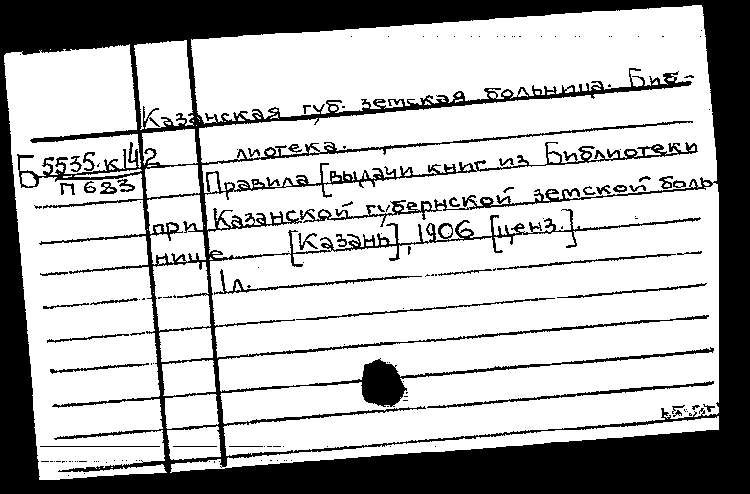 Казанская губ. земская больница. Биб-
лиотека.
Б 5535.к142
П 683
Правила [выдачи книг из Библиотеки
при Казанской губернской земской боль-
нице. [Казань], 1906 [ценз.].
1 л.